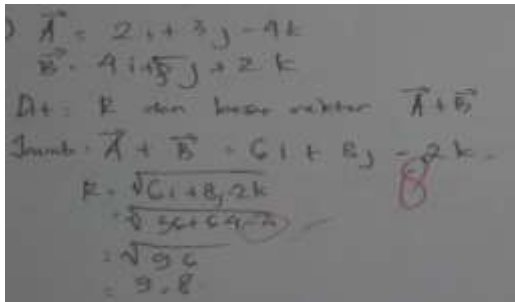 ) A = 2i + 3j - 4k
B = 4i + 5j + 2k
Dit : R dan besar vektor A + B
Jawab : A + B = 6i + 8j - 2k
8
R = √6i + 8j 2k
= √36 + 64 - 4
= √96
= 9.8